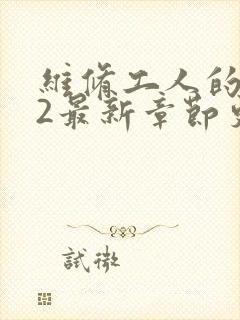 維脩工人的
2最新章節
試微